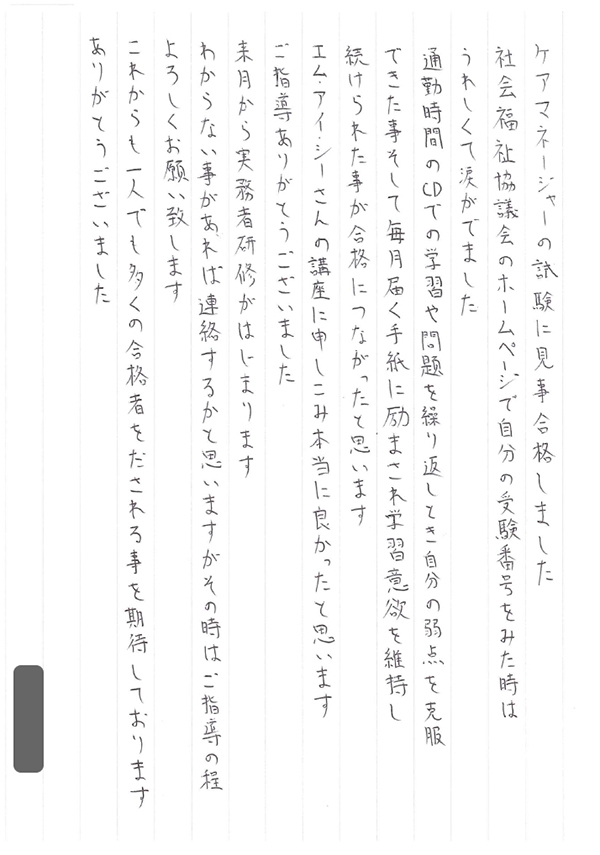 ケアマネージャーの試験に見事合格しました
社会福祉協議会のホームページで自分の受験番号をみた時は
うれしくて涙がでました
通勤時間のCDでの学習や問題を繰り返しとき自分の弱点を克服
できた事そして毎月届く手紙に励まされ学習意欲を維持し
続けられた事が合格につながったと思います
エム・アイ・シーさんの講座に申しこみ本当に良かったと思います
ご指導ありがとうございました
来月から実務者研修がはじまります
わからない事があれば連絡するかと思いますがその時はご指導の程
よろしくお願い致します
これからも一人でも多くの合格者をだされる事を期待しております
ありがとうございました